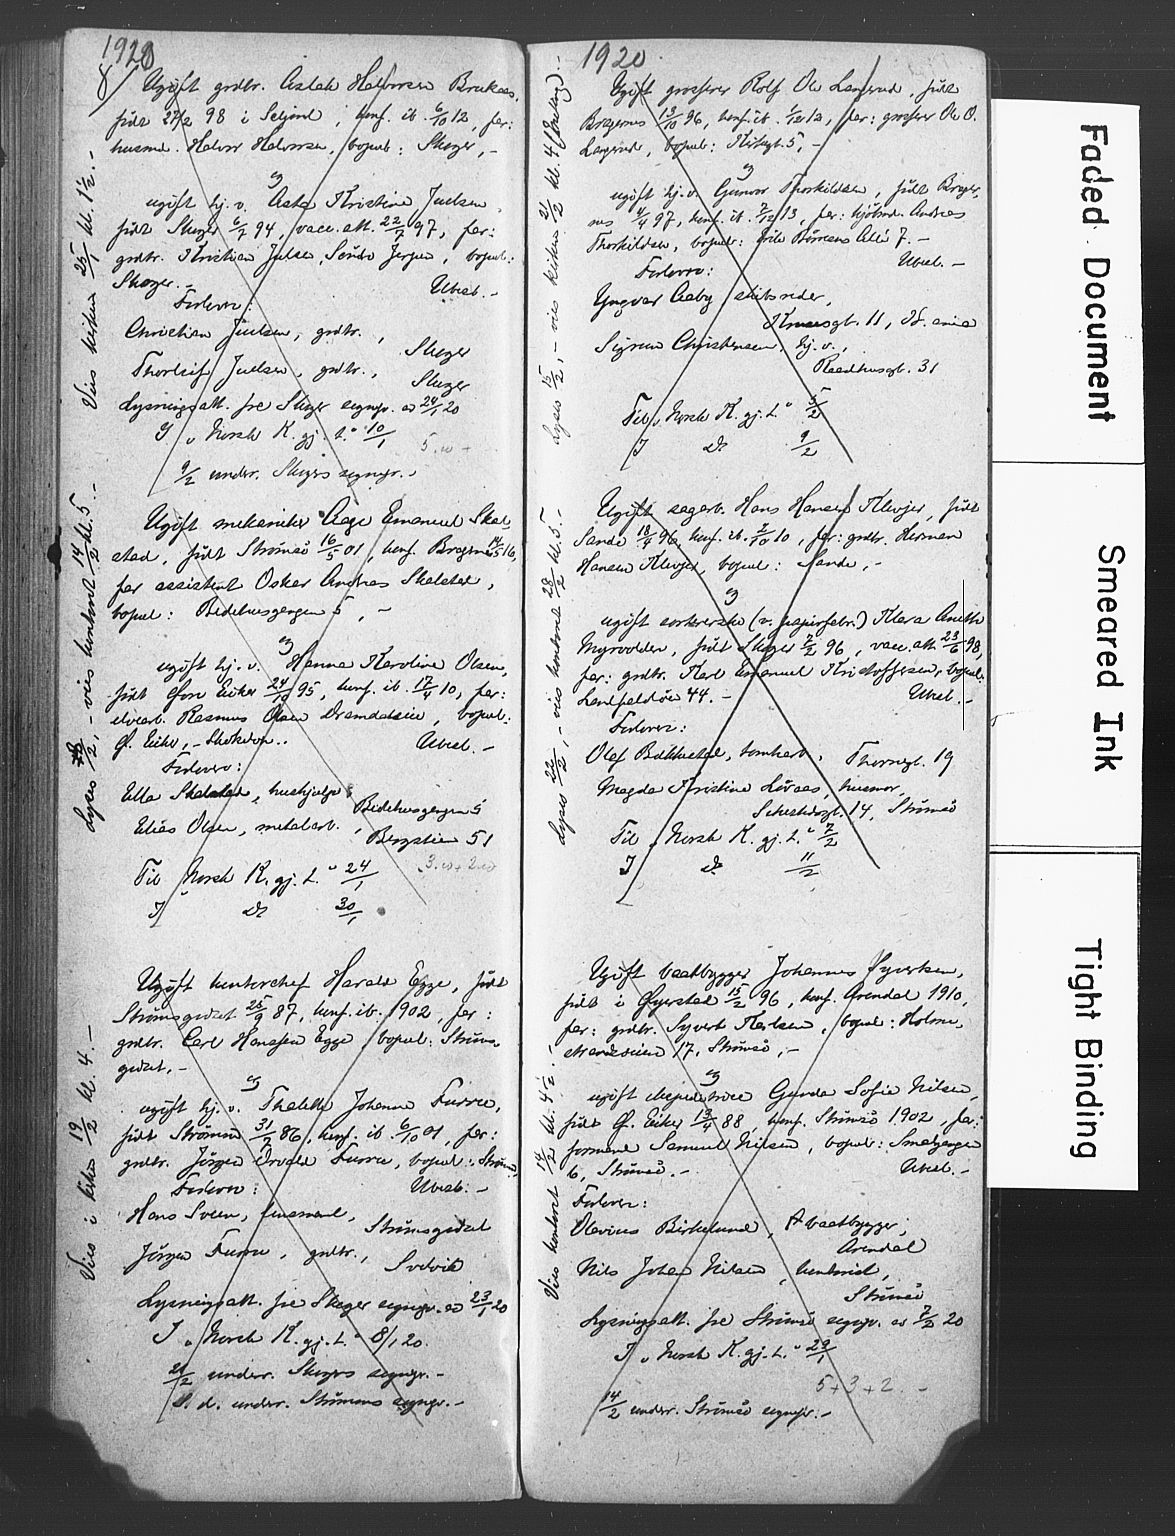 1920
Ugift grdbr. Aslak Halvorsen
født 27/2 98 i Seljord, konf. ib. 6/10 12, far:
husmd. Halvor Halvorsen, bopæl: Skoger, -
og
ugift hj. v. Asta Kristine Juelsen,
født Skoger 6/7 94, vacc. att. 22/7 97, far:
grdbr. Kristian Julsen, Søndre Jerpen, bopæl:
Skoger. - Ubesl. -
Forlovere:
Christian Juelsen, grdbr.,
Skoger
Thorleif Juelsen, grdbr.,
Skoger
Lysningsatt. fra Skoger sognepr. av 24/1 20
I „Norsk K. gj. L." 10/1
9/2 underr. Skogers sognepr. -
Vies kirken 25/1 kl. 1½. -
Ugift mekaniker Aage Emanuel Skal-
stad, født Strømsø 16/5 01, konf. Bragernes 14/5 16,
far assistent Oskar Andreas Skalstad,
bopæl: Bedehusgangen 5, -
og
ugift hj. v. Hanna Karoline Olsen,
født Øvre Eiker 24/10 95, konf. ib. 17/4 10, far:
elvearb. Rasmus Olsen, bopæl:
Ø. Eiker, - Ubesl. -
Forlovere:
Ella Skalstad, hushjelp,
Bedehusgangen 5
Elias Olsen, metalarb.,
Bergstien 51
Til „Norsk K. gj. L." 24/1
3.00 + 2.00
I do 30/1
- vies kontoret 14/2 kl. 5. -
Ugift kontorchef Harald Egge, født
Strømsgodset 25/9 87, konf. ib. 1902, far:
grdbr. Carl Hansen Egge, bopæl: Strøms-
godset, -
og
ugift hj. v. Thalette Johanne Furru,
født Strømmen 31/7 86, konf. ib. 6/10 01, far:
grdbr. Jørgen Orvald Furru, bopæl: Strømm
Forlovere: Ubesl. -
Hans Sveen,
Strømsgodset
Jørgen Furru, grdbr.,
Svelvik
Lysningsatt. fra Skoger sognepr. av 23/1 20
I „Norsk K. gj. L." 8/1 20.
21/2 underr. Skogers sognepr. -
S. d. underr. Strømmens sognepr. -
Vies i kirken 19/2 kl. 4. -
1920
Ugift grosserer Rolf Ole Langerud, født
Bragernes 13/10 96, konf. ib. 1/12 12, far: grosserer Ole O.
Langerud, bopæl: Kirkegt. 5, -
og
ugift hj. v. Gunvor Thorkildsen, født Brager-
nes 4/4 97, konf. ib. 7/12 13, far: kjøbmd. Andreas
Thorkildsen, bopæl: Erik Børresens Allé 7. -
Ubesl. -
Forlovere:
Yngvar Aaby, skibsreder,
11, Kr.ania
Sigrun Christensen, hj. v.,
Raadhusgt. 31
Til „Norsk K. gj. L." 5/2
I do 9/2
Lyses 15/2, - vies kirken 21/2 kl. 4
Ugift sagarb. Hans Hansen Klevjer, født
Sande 18/4 96, konf. ib. 2/10 10, far: grdbr. Herman
Hansen Klevjer, bopæl: Sande, -
og
ugift sortererske (v. papirfabr.) Klara Anette
Myrvolden, født Skoger 7/2 96, vacc. att. 23/6 98,
far: grdbr. Karl Emanuel Kristoffersen, bopæl:
Landfaldøen 44. - Ubesl. -
Forlovere:
Olaf Bakkestad, tomtearb., Thornegt. 19
Magda Kristine Løvaas, husmor,
Schultzegt. 14, Strømsø
Til „Norsk K. gj. L." 7/2
I do 11/2
Lyses 22/2, - vies kontoret 28/2 kl. 5. -
Ugift baatbygger Johannes Syvertsen,
født i Øyestad 15/2 96, konf. Arendal 1910,
far: grdbr. Syvert Karlsen, bopæl: Holme-
strandsveien 17, Strømsø, -
og
ugift ekspeditrice Gunda Sofie Nilsen,
født Ø. Eiker 13/4 88, konf. Strømsø 1902, far:
formand Samuel Nilsen, bopæl: Smalgangen
6, Strømsø. - Ubesl. -
Forlovere:
Olevius Birkelund, baatbygger,
Arendal
Nils Johan Nilsen, kontorist,
Strømsø
Lysningsatt. fra Strømsø sognepr. av 7/2 20
I „Norsk K. gj. L." 29/1
5+3+2. -
14/2 underr. Strømsø sognepr. -
Vies kontoret 14/2 kl. 4½. -
Faded Document
Smeared Ink
Tight Binding